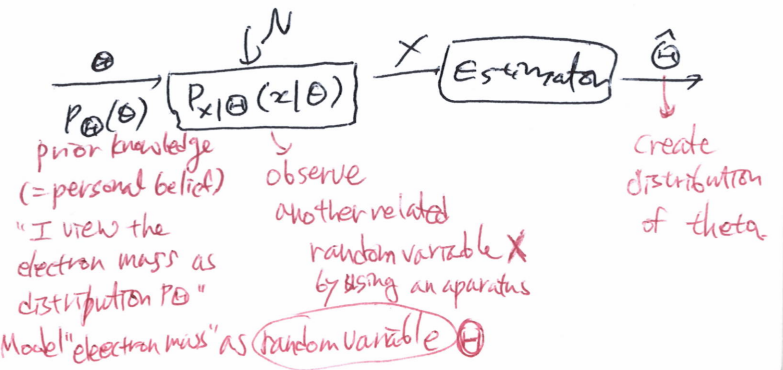 N
Θ
X
Θ̂
P_Θ(θ)
P_X|Θ(x|θ)
Estimator
prior knowledge
(=personal belief)
"I view the
electron mass as
distribution PΘ"
Model "electron mass" as random variable Θ
observe
another related
random variable X
by using an aparatus
create
distribution
of theta